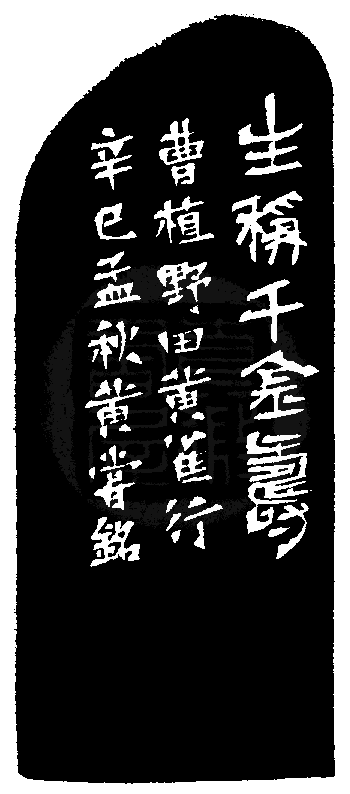 主稱千金壽
曹植野田黃雀行
辛巳孟秋黃嘗銘